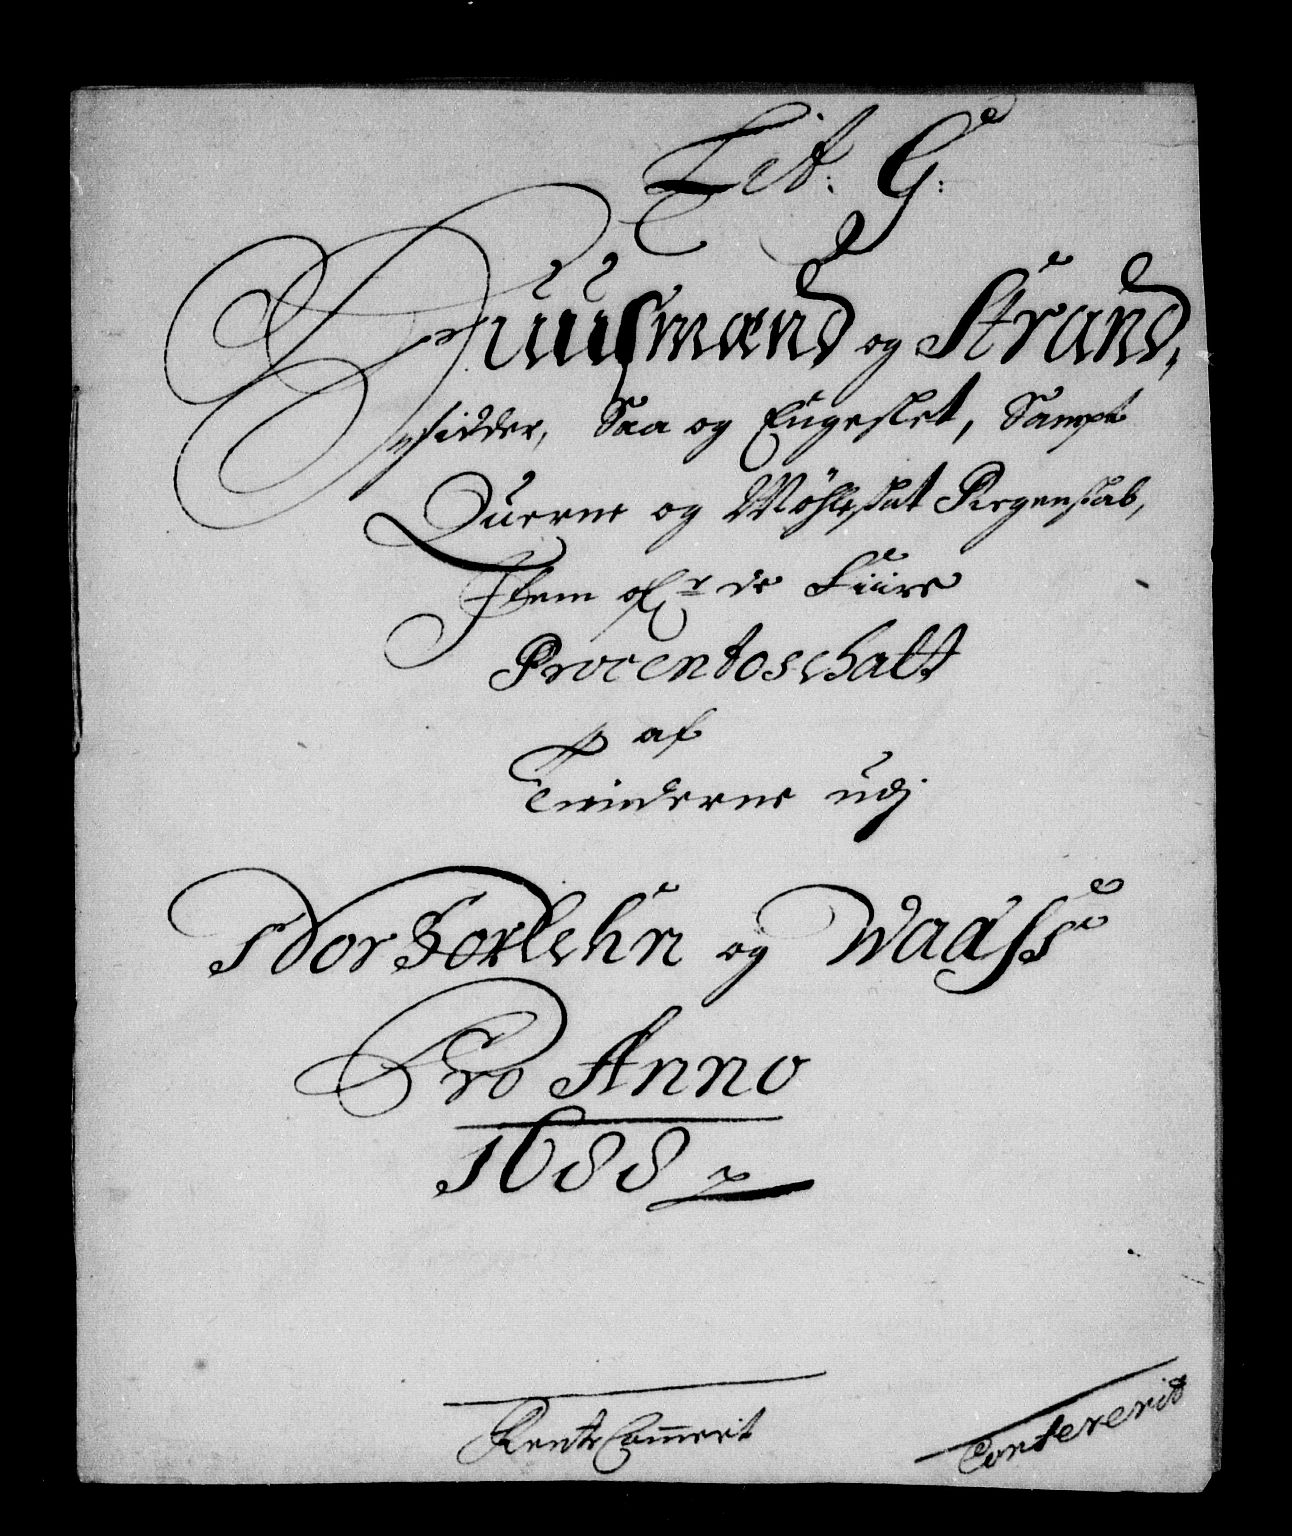 Lit: G:
Huusmænd og Strand,
sidder, Saa og Engeslet, Sampt
Querne og Möhleskat Regenskab,
Item ofr de Fiire
Procentoschatt
af
Tienderne udj
Nordforlehn og Waass
Pro Anno
1688
Rente Cammerit
Confererit